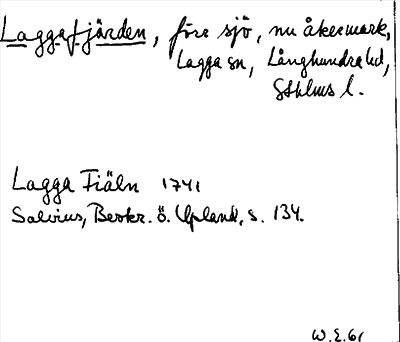 Laggafjärden, förr sjö, nu åkermark,
Lagga sn, Långhundra hd,
Sthlms l.
Lagga Fiäln 1741
Salvius, Beskr. ö. Upland, s. 134.
W.E. 61